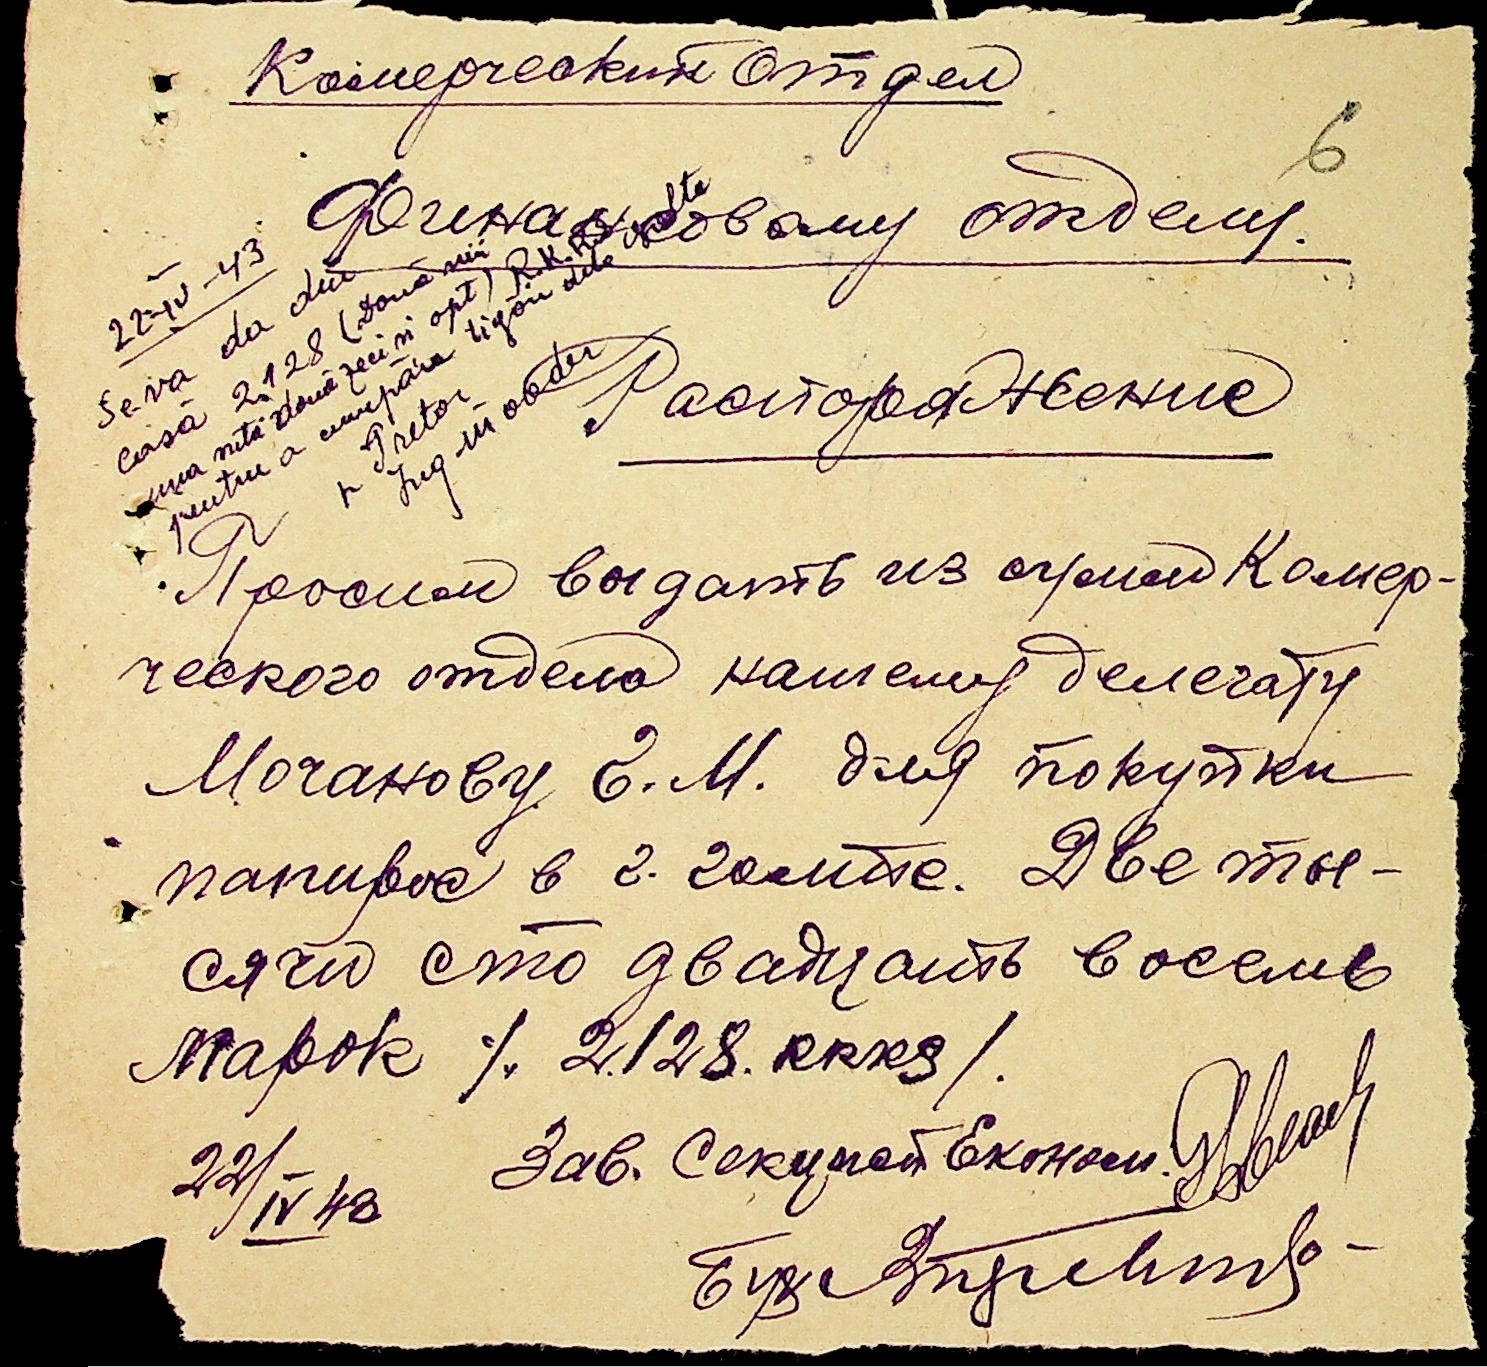 Комерческий Отдел
6
Финансовому отделу.
22-IV-43
Se va da din
casă 2.128 (Două mii
una sută două zeci și opt) R.K.K.
pentru a cumpăra țigări dela Golta
p. Pretor
Распоряжение
Просим выдать из сумм Комер-
ческого отдела нашему делегату
Мочанову Е.М. для покупки
папирос в г. Голте. Две ты-
сячи сто двадцать восемь
марок /. 2.128. RKKS /.
22/IV 43 Зав. Секцией Економ.